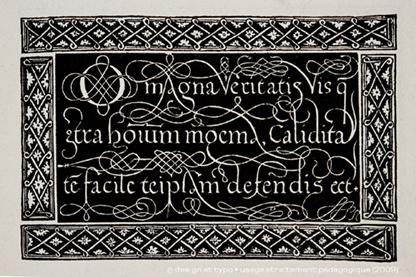 O magna Veritatis Vis q̃
ꝯtra hoīum Calidita
tē facile teipsam defendis ect.
© design et typo • usage strictement pédagogique (2009)